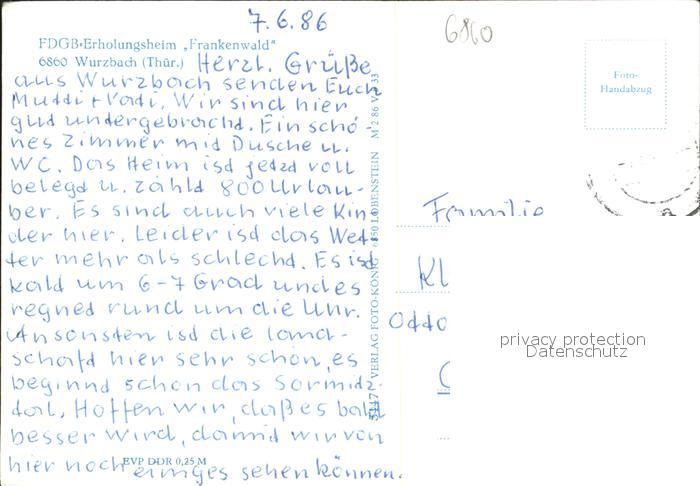 7.6.86
6860
FDGB-Erholungsheim „Frankenwald"
6860 Wurzbach (Thür.) Herzl. Grüße
aus Wurzbach senden Euch
Muddi + Vadi. Wir sind hier
gud undergebrachd. Ein schö
nes Zimmer mid Dusche u.
WC. Das Heim isd jetzd voll
belegd u. zähld 800 Urlau-
ber. Es sind auch viele Kin
der hier. Leider isd das Wet-
ter mehr als schlechd. Es isd
kald um 6-7 Grad und es
regned rund um die Uhr.
Ansonsten isd die land-
schafd hier sehr schön, es
beginnd schon das Sormitz-
dal. Hoffen wir, daß es bald
besser wird, damid wir von
hier noch einiges sehen können.
EVP DDR 0,25 M
VERLAG FOTO-KÖNIG 6850 LOBENSTEIN
Foto-
Handabzug
Familie
Kl
Oddo
privacy protection
Datenschutz